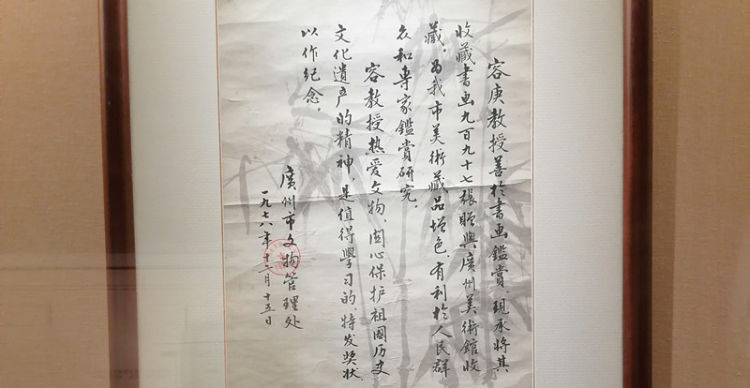 容庚教授善於书画鑑赏，现承将其
收藏书画九百九十七张贈與廣州美術館收
藏，为我市美術藏品增色，有利於人民群
众和專家鑑赏研究。
容教授热爱文物，関心保护祖國历史
文化遗产的精神，是值得學习的，特发奖状，
以作紀念。
廣州市文物管理处
一九七八年十二月十五日